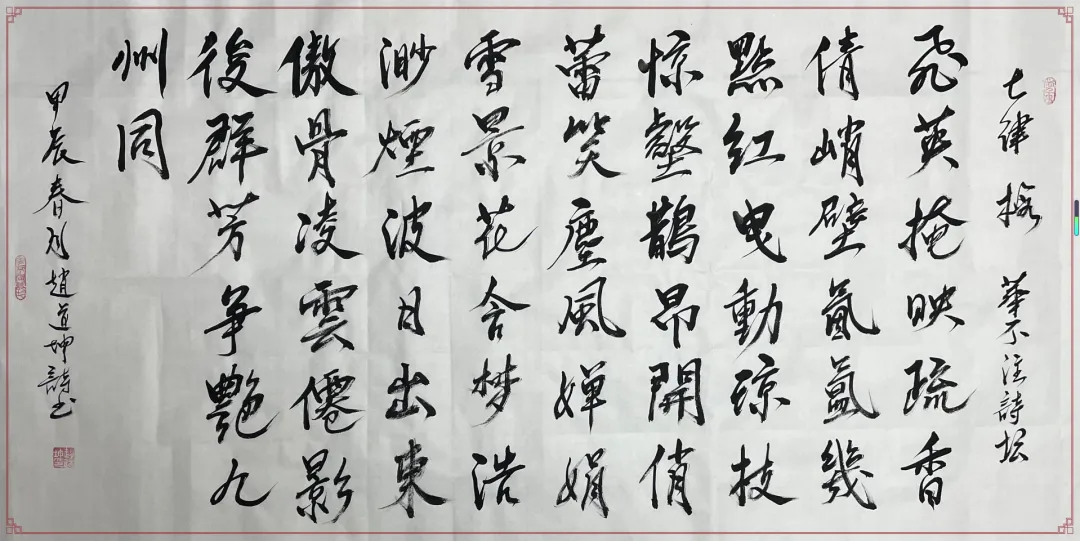 七律 梅 華不注詩坛
飛英掩映疏香
倩峭壁氤氲幾
點红曳動琼枝
惊壑鵲昂開俏
蕾笑塵風婵娟
雪景花含梦浩
渺煙波日出東
傲骨凌雲僊影
後群芳争艷九
州同
甲辰春月趙道坤詩书